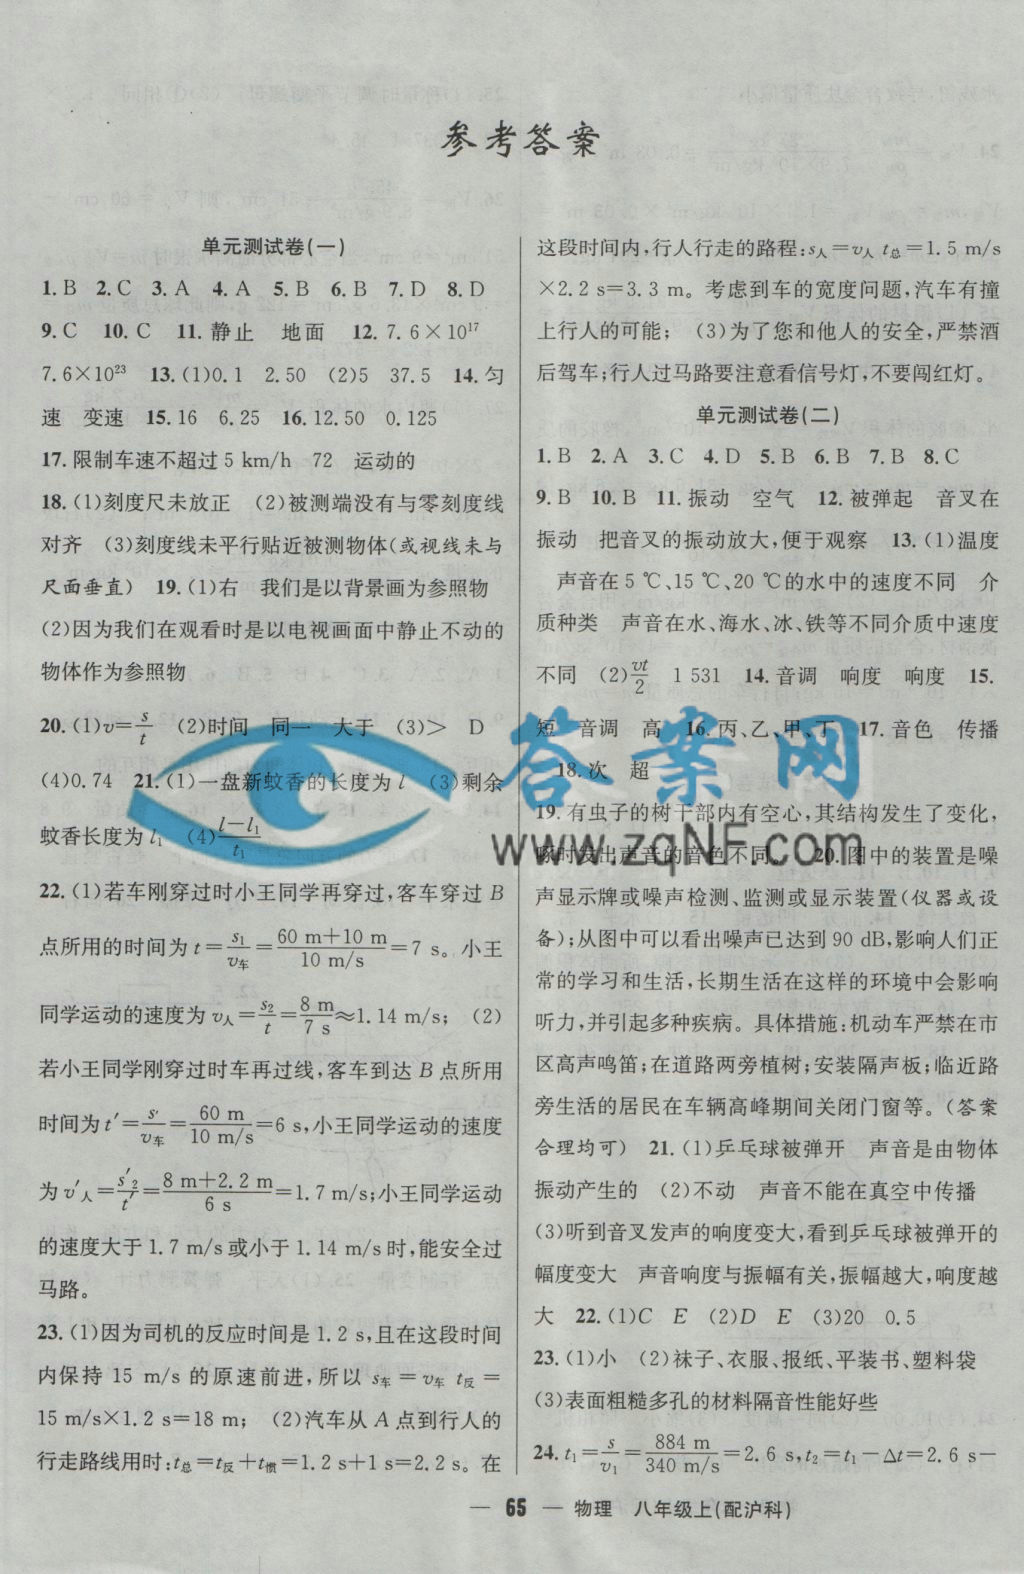 参考答案
单元测试卷(一)
1.B 2.C 3.A 4.A 5.B 6.B 7.D 8.D
9.C 10.C 11.静止 地面 12.7.6×10¹⁷
7.6×10²³ 13.(1)0.1 2.50 (2)5 37.5 14.匀
速 变速 15.16 6.25 16.12.50 0.125
17.限制车速不超过5 km/h 72 运动的
18.(1)刻度尺未放正 (2)被测端没有与零刻度线
对齐 (3)刻度线未平行贴近被测物体(或视线未与
尺面垂直) 19.(1)右 我们是以背景画为参照物
(2)因为我们在观看时是以电视画面中静止不动的
物体作为参照物
20.(1)v=s/t (2)时间 同一 大于 (3)> D
(4)0.74 21.(1)一盘新蚊香的长度为l (3)剩余
蚊香长度为l₁ (4)(l-l₁)/t₁
22.(1)若车刚穿过时小王同学再穿过,客车穿过B
点所用的时间为t=s₁/v车=(60 m+10 m)/(10 m/s)=7 s。小王
同学运动的速度为v人=s₂/t=8 m/7 s≈1.14 m/s; (2)
若小王同学刚穿过时车再过线,客车到达B点所用
时间为t′=s′/v车=60 m/(10 m/s)=6 s,小王同学运动的速度
为v′人=s′₂/t′=(8 m+2.2 m)/6 s=1.7 m/s;小王同学运动
的速度大于1.7 m/s或小于1.14 m/s时,能安全过
马路。
23.(1)因为司机的反应时间是1.2 s,且在这段时间
内保持15 m/s的原速前进,所以s车=v车 t反=
15 m/s×1.2 s=18 m; (2)汽车从A点到行人的
行走路线用时:t总=t反+t惯=1.2 s+1 s=2.2 s。在
这段时间内,行人行走的路程:s人=v人 t总=1.5 m/s
×2.2 s=3.3 m。考虑到车的宽度问题,汽车有撞
上行人的可能; (3)为了您和他人的安全,严禁酒
后驾车;行人过马路要注意看信号灯,不要闯红灯。
单元测试卷(二)
1.B 2.A 3.C 4.D 5.B 6.B 7.B 8.C
9.B 10.B 11.振动 空气 12.被弹起 音叉在
振动 把音叉的振动放大,便于观察 13.(1)温度
声音在5 ℃、15 ℃、20 ℃的水中的速度不同 介
质种类 声音在水、海水、冰、铁等不同介质中速度
不同 (2)vt/2 1 531 14.音调 响度 响度 15.
短 音调 高 16.丙、乙、甲、丁 17.音色 传播
18.次 超
19.有虫子的树干部内有空心,其结构发生了变化,
啄时发出声音的音色不同。 20.图中的装置是噪
声显示牌或噪声检测、监测或显示装置(仪器或设
备);从图中可以看出噪声已达到90 dB,影响人们正
常的学习和生活,长期生活在这样的环境中会影响
听力,并引起多种疾病。具体措施:机动车严禁在市
区高声鸣笛;在道路两旁植树;安装隔声板;临近路
旁生活的居民在车辆高峰期间关闭门窗等。(答案
合理均可) 21.(1)乒乓球被弹开 声音是由物体
振动产生的 (2)不动 声音不能在真空中传播
(3)听到音叉发声的响度变大,看到乒乓球被弹开的
幅度变大 声音响度与振幅有关,振幅越大,响度越
大 22.(1)C E (2)D E (3)20 0.5
23.(1)小 (2)袜子、衣服、报纸、平装书、塑料袋
(3)表面粗糙多孔的材料隔音性能好些
24.t₁=s/v₁=884 m/(340 m/s)=2.6 s,t₂=t₁-Δt=2.6 s-
— 65 — 物理 八年级上(配沪科)
答案网
www.zqNF.com